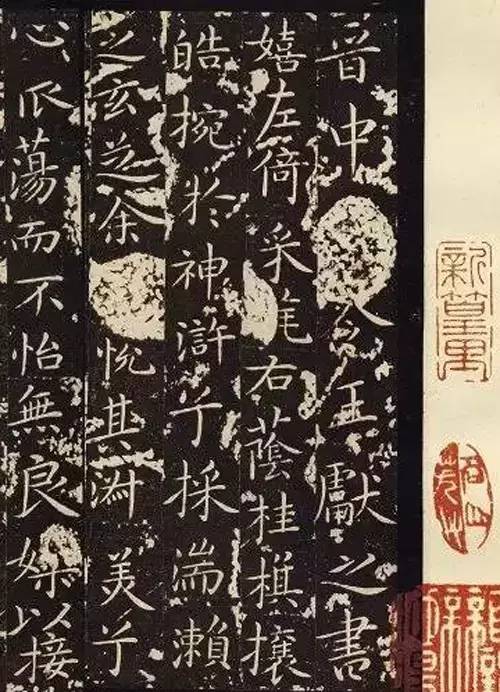 晉中令王獻之書
嬉左倚采旄右蔭桂棋攘
皓捥於神滸兮採湍瀨
之玄芝余悅其淑美兮
心蕩而不怡無良媒以接